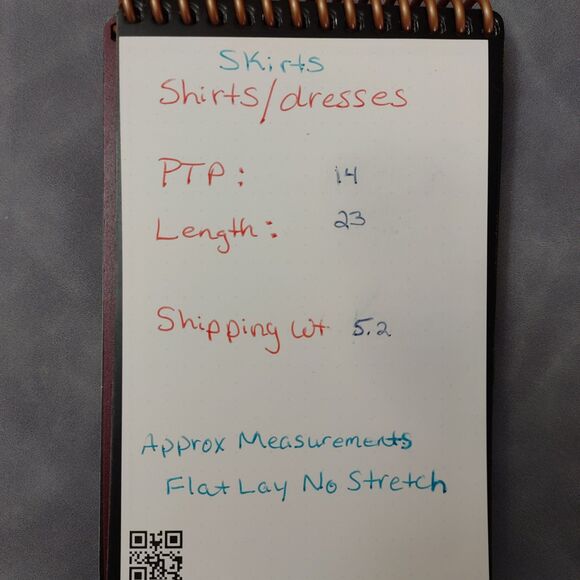 Skirts
Shirts/dresses
PTP: 14
Length: 23
Shipping wt 5.2
Approx Measurements
Flat Lay No Stretch